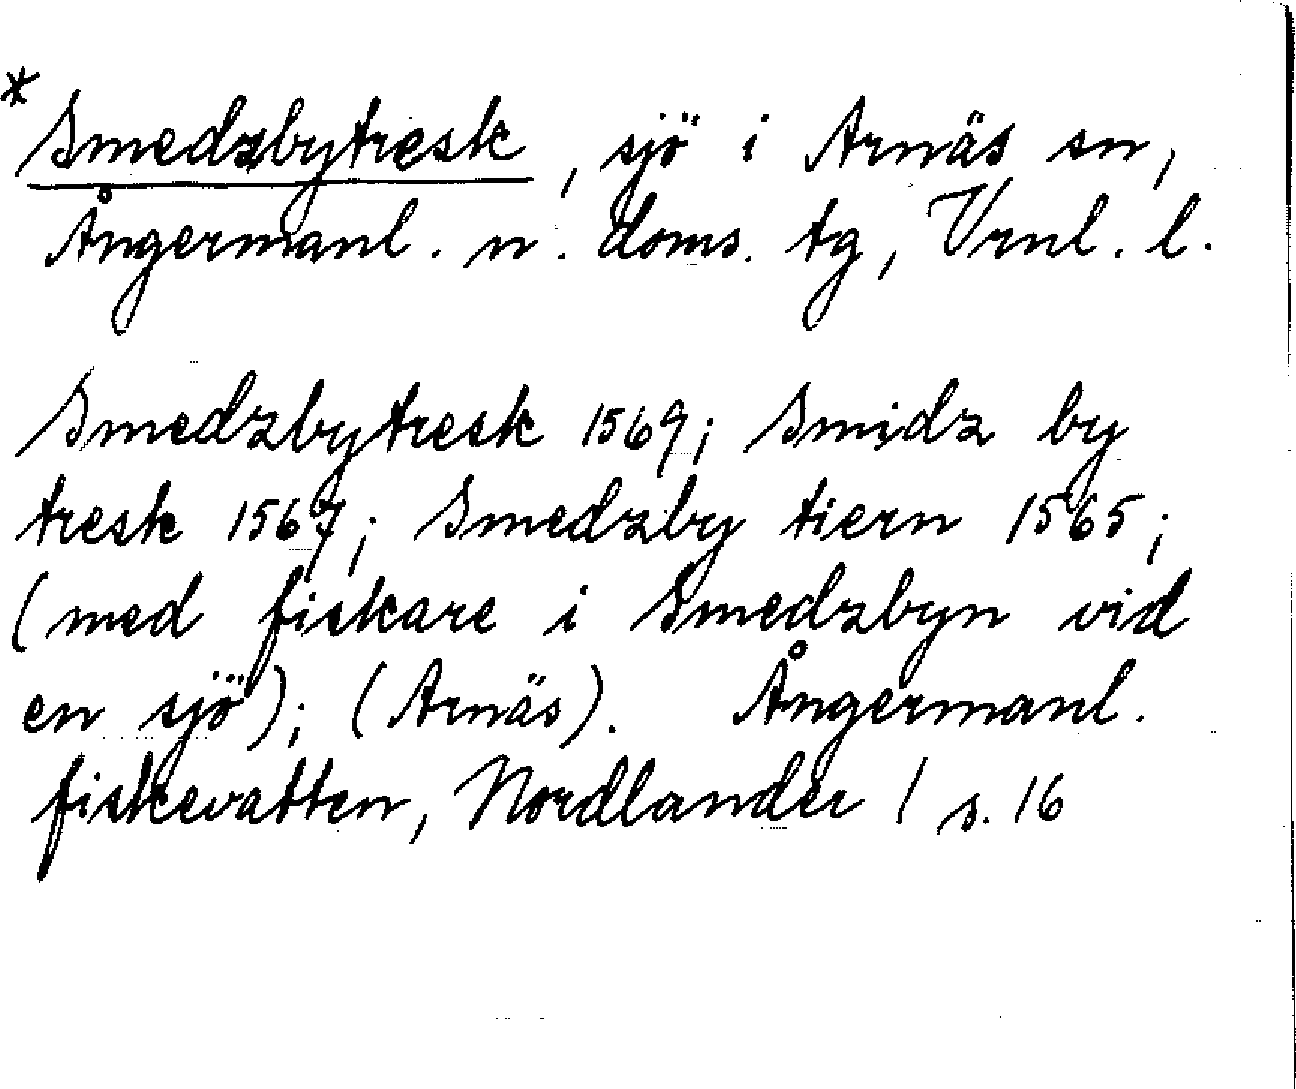 * Smedzbytresk, sjö i Arnäs sn,
Ångermanl. n. doms. tg, Vrnl. l.
Smedzbytresk 1569; Smidz by
tresk 1567; Smedzby tiern 1565;
(med fiskare i Smedzbyn vid
en sjö); (Arnäs). Ångermanl.
fiskevatten, Nordlander 1 s. 16